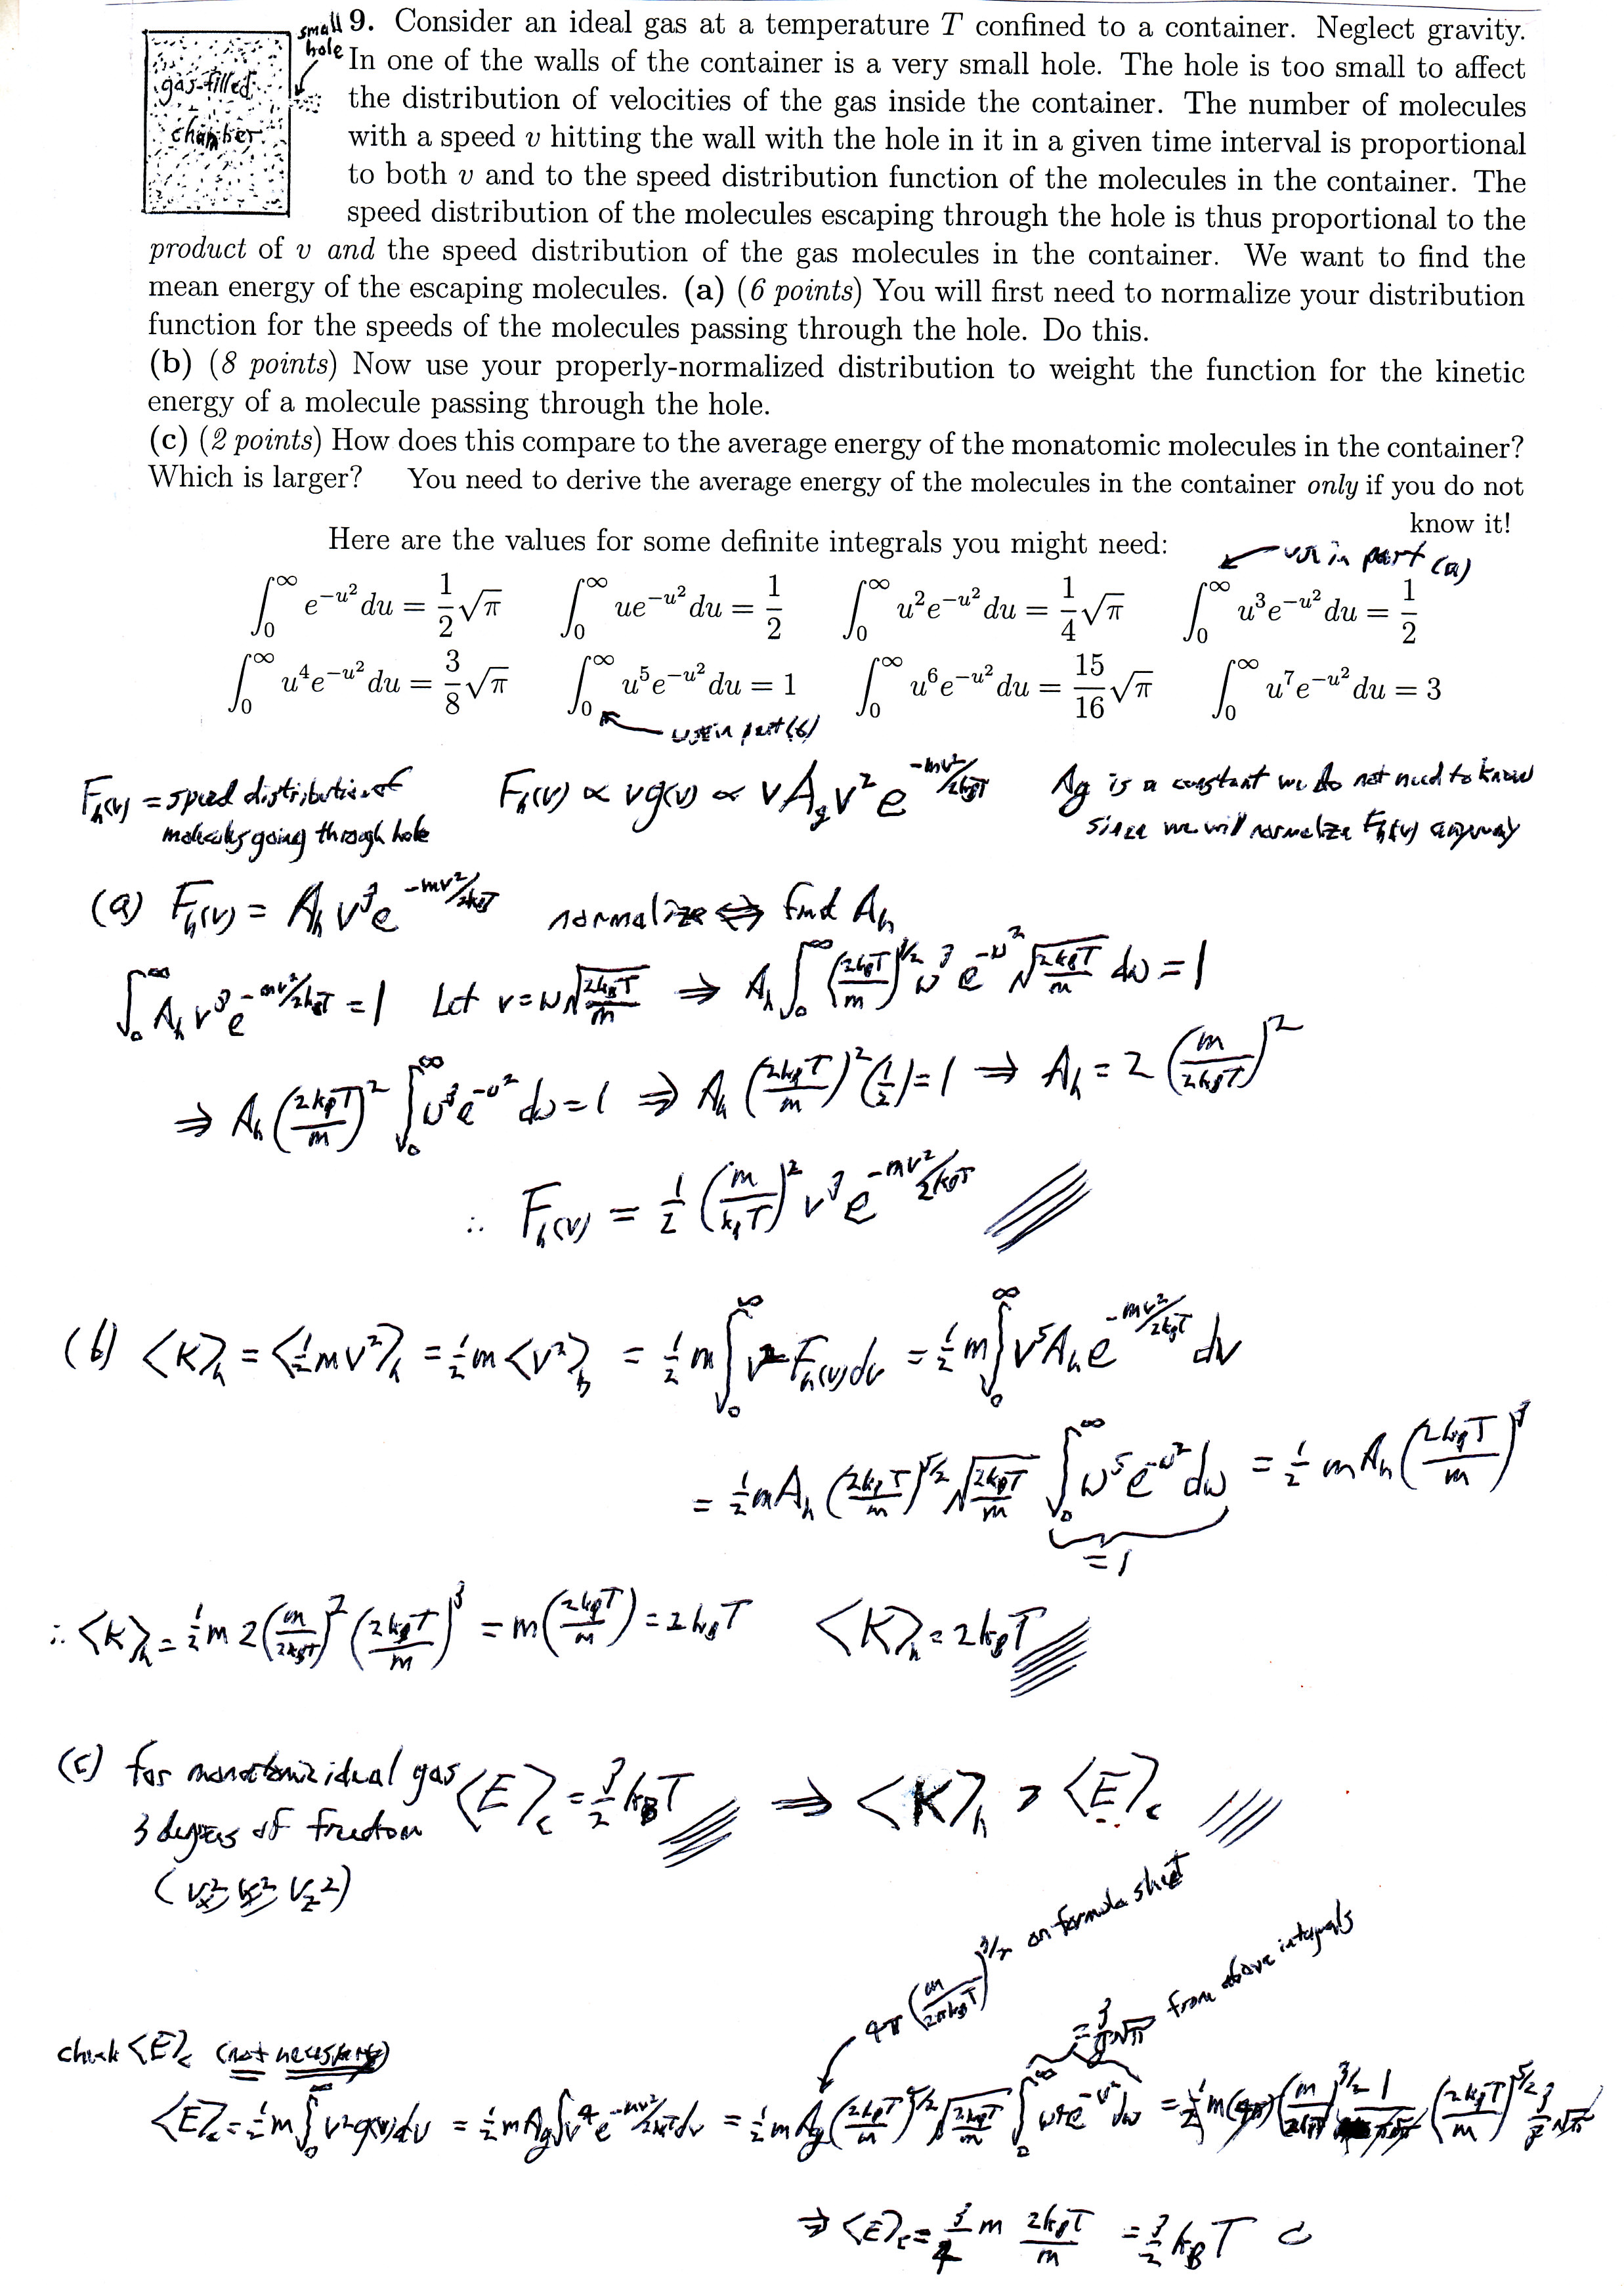 small
hole
gas-filled
chamber
9. Consider an ideal gas at a temperature T confined to a container. Neglect gravity.
In one of the walls of the container is a very small hole. The hole is too small to affect
the distribution of velocities of the gas inside the container. The number of molecules
with a speed v hitting the wall with the hole in it in a given time interval is proportional
to both v and to the speed distribution function of the molecules in the container. The
speed distribution of the molecules escaping through the hole is thus proportional to the
product of v and the speed distribution of the gas molecules in the container. We want to find the
mean energy of the escaping molecules. (a) (6 points) You will first need to normalize your distribution
function for the speeds of the molecules passing through the hole. Do this.
(b) (8 points) Now use your properly-normalized distribution to weight the function for the kinetic
energy of a molecule passing through the hole.
(c) (2 points) How does this compare to the average energy of the monatomic molecules in the container?
Which is larger? You need to derive the average energy of the molecules in the container only if you do not
know it!
Here are the values for some definite integrals you might need:
use in part (a)
∫₀^∞ e^{-u²} du = 1/2 √π   ∫₀^∞ ue^{-u²} du = 1/2   ∫₀^∞ u²e^{-u²} du = 1/4 √π   ∫₀^∞ u³e^{-u²} du = 1/2
∫₀^∞ u⁴e^{-u²} du = 3/8 √π   ∫₀^∞ u⁵e^{-u²} du = 1   ∫₀^∞ u⁶e^{-u²} du = 15/16 √π   ∫₀^∞ u⁷e^{-u²} du = 3
use in part (b)
F_h(v) = speed distribution of molecules going through hole
F_h(v) ∝ v g(v) ∝ v A_g v² e^{-mv²/2k_BT}
A_g is a constant we do not need to know
since we will normalize F_h(v) anyway
(a) F_h(v) = A_h v³ e^{-mv²/2k_BT}   normalize ⇔ find A_h
∫₀^∞ A_h v³ e^{-mv²/2k_BT} = 1   Let v = w √(2k_BT/m) ⇒ A_h ∫₀^∞ (2k_BT/m)^{3/2} w³ e^{-w²} √(2k_BT/m) dw = 1
⇒ A_h (2k_BT/m)² ∫₀^∞ w³ e^{-w²} dw = 1 ⇒ A_h (2k_BT/m)² (1/2) = 1 ⇒ A_h = 2 (m/2k_BT)²
∴ F_h(v) = 1/2 (m/k_BT)² v³ e^{-mv²/2k_BT}
(b) ⟨K⟩_h = ⟨1/2 mv²⟩_h = 1/2 m ⟨v²⟩_h = 1/2 m ∫₀^∞ v² F_h(v) dv = 1/2 m ∫₀^∞ v⁵ A_h e^{-mv²/2k_BT} dv
= 1/2 m A_h (2k_BT/m)^{5/2} √(2k_BT/m) ∫₀^∞ w⁵ e^{-w²} dw = 1/2 m A_h (2k_BT/m)³
= 1
∴ ⟨K⟩_h = 1/2 m 2 (m/2k_BT)² (2k_BT/m)³ = m (2k_BT/m) = 2k_BT   ⟨K⟩_h = 2k_BT
(c) for monatomic ideal gas ⟨E⟩_c = 3/2 k_BT ⇒ ⟨K⟩_h > ⟨E⟩_c
3 degrees of freedom
(v_x², v_y², v_z²)
4π (m/2πk_BT)^{3/2} on formula sheet
= 3/8 √π from above integrals
check ⟨E⟩_c (not necessary)
⟨E⟩_c = 1/2 m ∫₀^∞ v² g(v) dv = 1/2 m A_g ∫ v⁴ e^{-mv²/2k_BT} dv = 1/2 m A_g (2k_BT/m)^{4/2} √(2k_BT/m) ∫₀^∞ w⁴ e^{-w²} dw = 1/2 m (4π) (m/2k_BT)^{3/2} 1/(π√π) (2k_BT/m)^{5/2} 3/8 √π
⇒ ⟨E⟩_c = 3/4 m 2k_BT/m = 3/2 k_BT